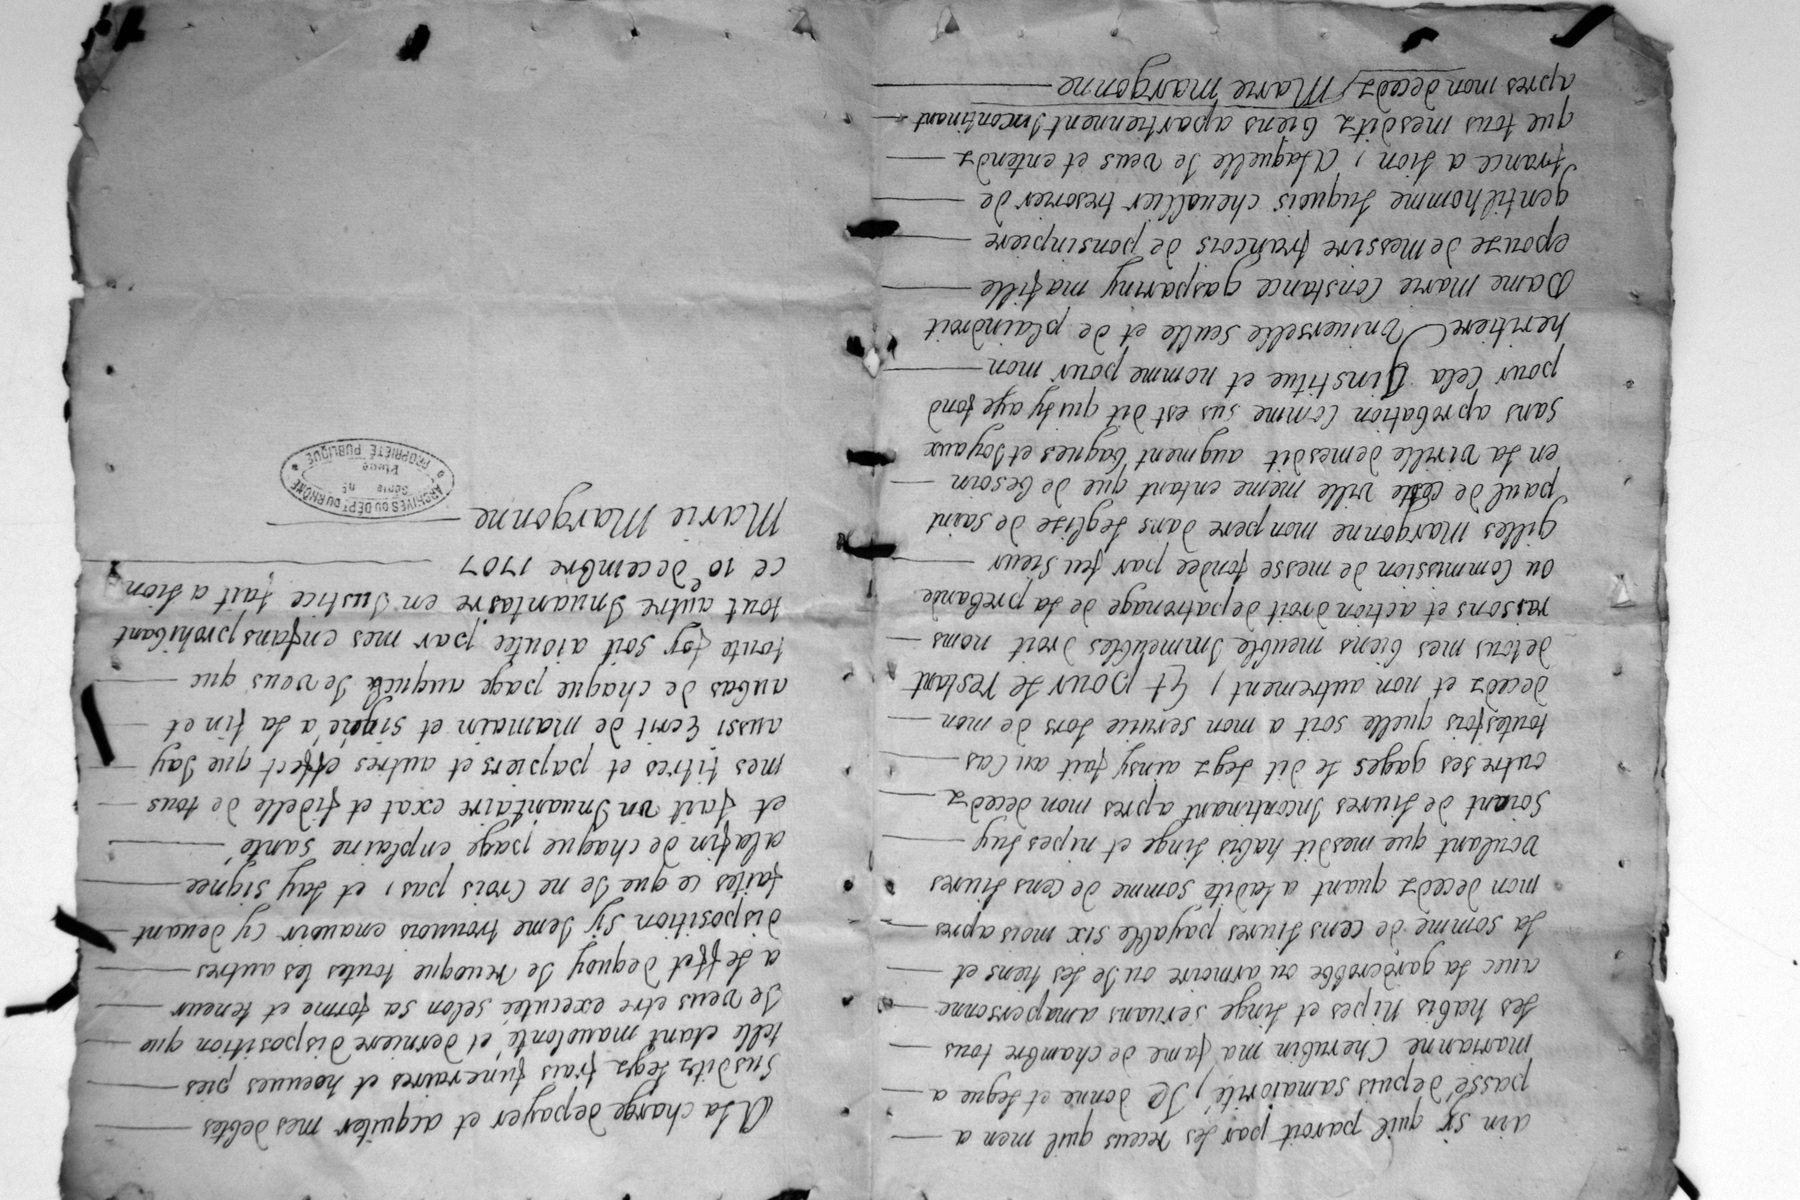 ain sy quil paroit par les receus quil men a
passé depuis samaiorité, Je donne et legue a
marianne Cherubin ma fame de chambre tous
les habis nipes et linge seruans amapersonne
auec la garderobbe ou armoire ou Je les tiens et
la somme de cens liures payable six mois apres
mon decedz quant a ladite somme de cens liures
voulant que mesdit habis linge et nipes luy
soiant de liures Incontinant apres mon decedz
outre ses gages le dit legz ainsy fait au Cas
toutesfois quelle soit a mon seruice lors de mon
decedz et non autrement, Et pour le restant
detous mes biens meuble Immeubles droit noms
raisons et action droit depatronage de la prebande
ou Commission de messe fondée par feu sieur
Gilles Margonne mon pere dans leglize de saint
paul de cette ville meme entant que de besoin
en la virille demesdit augment bagues et Joyaux
sans aprobation Comme sus est dit quily aye fond
pour Cela Jinstitue et nomme pour mon
heritiere Vniverselle seulle et de plaindroit
Dame Marie Constance gaspariny mafille
epouze de Messire francois de ponsinpiere
gentilhomme luquois cheuallier tresorier de
france a lion, Alaquelle Je veus et entendz
que tous mesditz biens apartiennent Incontinant
apres mon decedz, Marie Margonne
A la charge depayer et aquiter mes debtes
susditz legz frais funeraires et hoeuues pies
telle etant mauolonté et derniere disposition que
Je veus etre executée selon sa forme et teneur
a leffet dequoy Je reuoque toutes les autres
disposition sy Jeme trouuois enauoir cy deuant
faites ce que Je ne Crois pas, et lay signée
alafin de chaque page enplaine santé
et fait vn Inuantaire exat et fidelle de tous
mes titres et papiers et autres effect que Jay
aussi Ecrit de mamain et signé a la fin et
aubas de chaque page auquel Je veus que
toute foy soit aioutée par mes enfans prohibant
tout autre Inuantasre en Justice fait a lion
ce 10e decembre 1707
Marie Margonne
ARCHIVES DU DÉPT DU RHÔNE
Série n°
Pièce
PROPRIÉTÉ PUBLIQUE